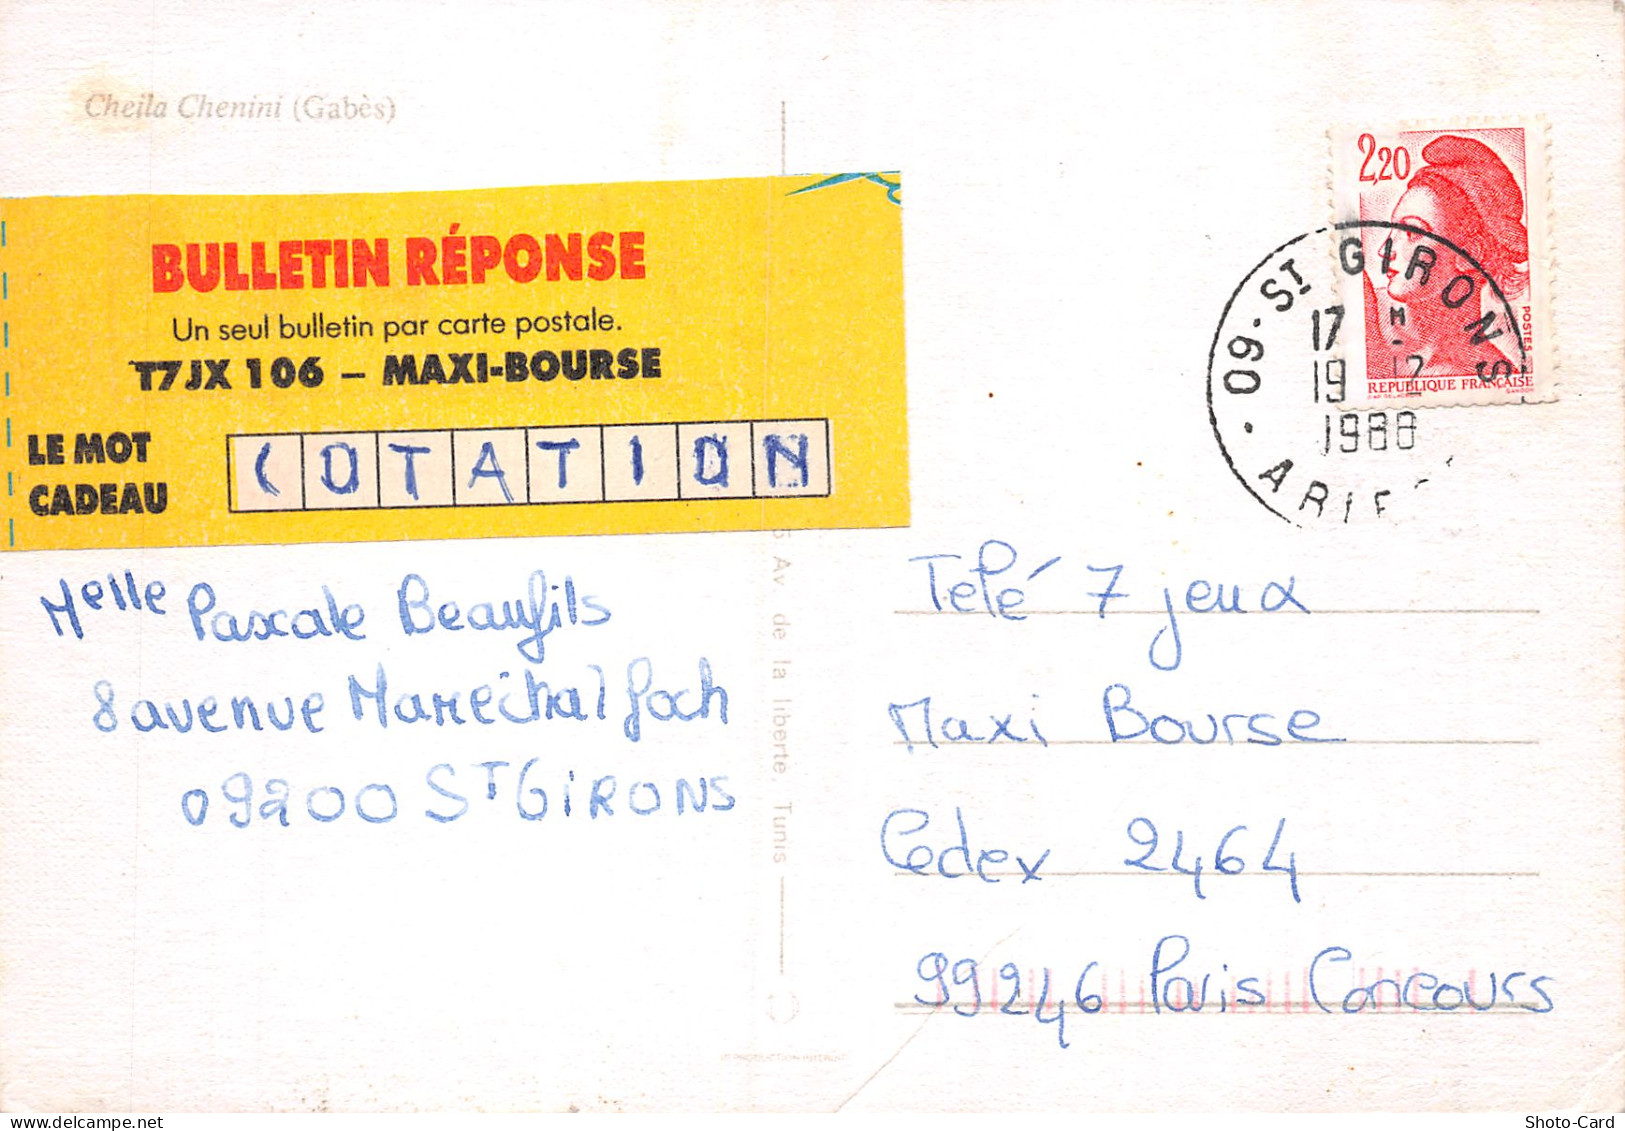 Cheila Chenini (Gabès)
BULLETIN RÉPONSE
Un seul bulletin par carte postale.
T7JX 106 – MAXI-BOURSE
LE MOT
CADEAU
COTATION
Melle Pascale Beaufils
8 avenue Marechal Foch
09200 ST GIRONS
5 Av. de la liberté, Tunis
2,20
POSTES
REPUBLIQUE FRANÇAISE
09 - ST GIRONS
17 H
19 - 12
1988
ARIE
Telé 7 jeux
Maxi Bourse
Cedex 2464
99246 Paris Concours
Shoto-Card